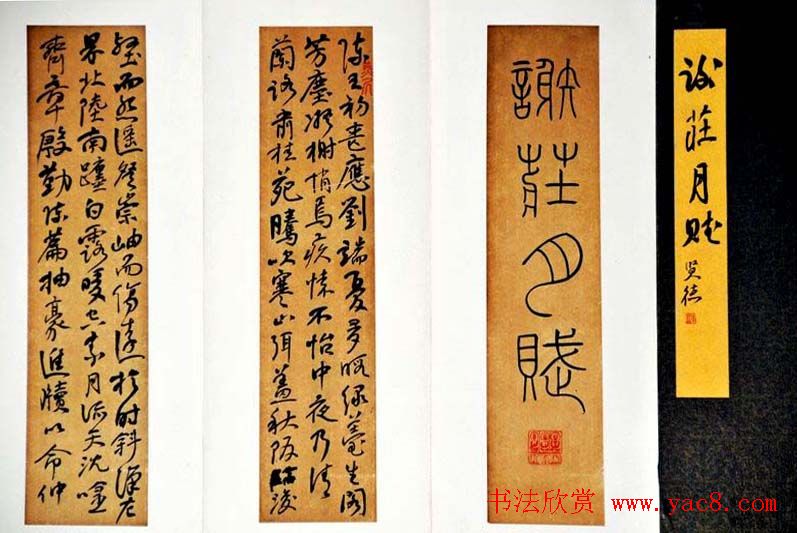 謝莊月賦
贤德
謝莊月賦
陳王初喪應劉端憂多暇綠薹生閣
芳塵凝榭悄焉疚懷不怡中夜乃清
蘭路肅桂苑騰吹寒山弭蓋秋阪臨浚
壑而怨遥登崇岫而傷遠於時斜漢左
界北陸南躔白露曖空素月流天沈吟
齊章殷勤陳篇抽毫進牘以命仲
书法欣赏 www.yac8.com